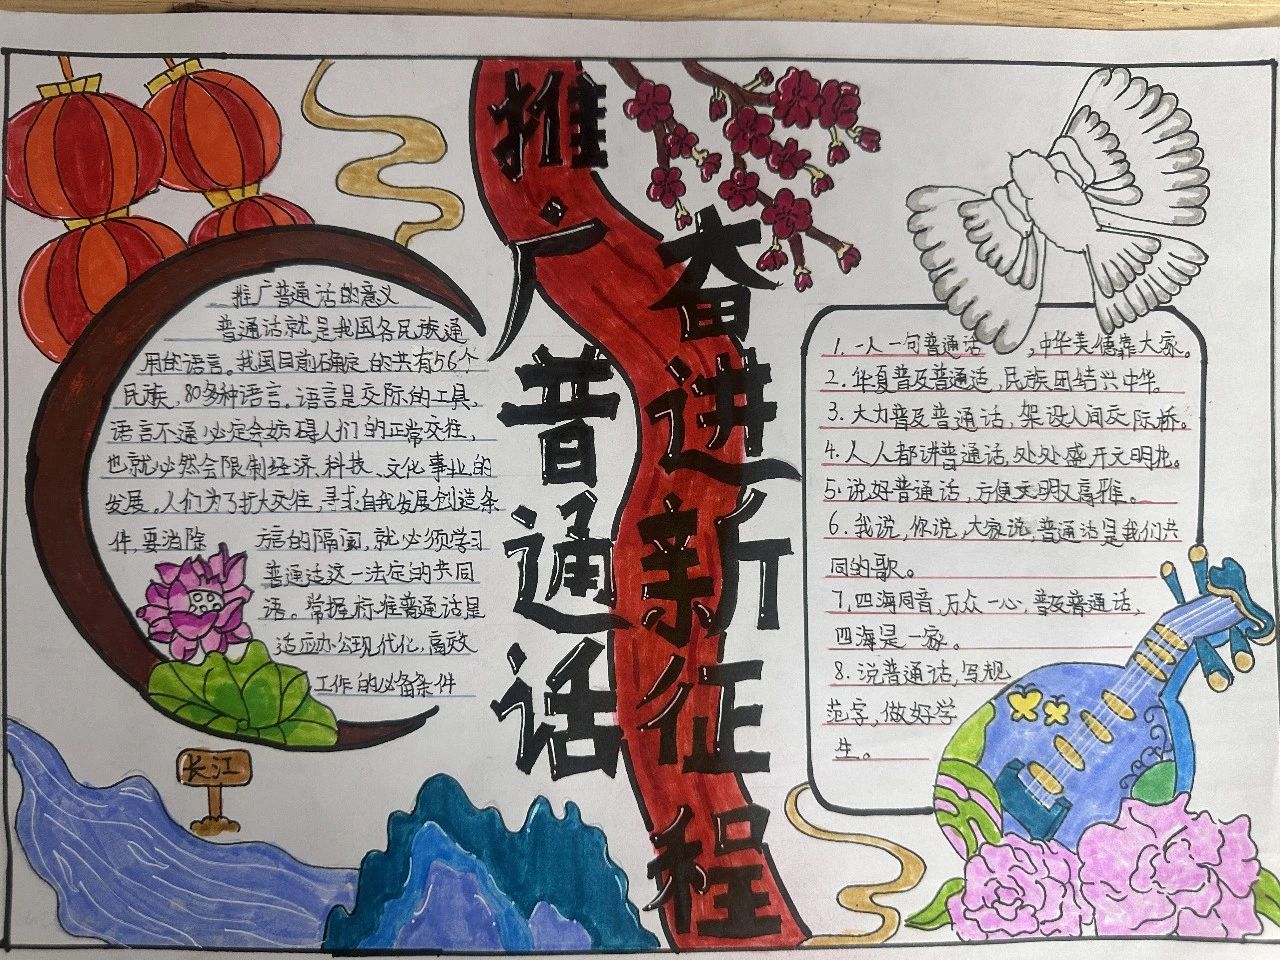 推广普通话
奋进新征程
推广普通话的意义
普通话就是我国各民族通
用的语言。我国目前确定的共有56个
民族，80多种语言。语言是交际的工具，
语言不通必定会妨碍人们的正常交往，
也就必然会限制经济、科技、文化事业的
发展。人们为了扩大交往，寻求自我发展创造条
件，要消除 方言的隔阂，就必须学习
普通话这一法定的共同
语。掌握标准普通话是
适应办公现代化，高效
工作的必备条件
长江
1.一人一句普通话，中华美德靠大家。
2.华夏普及普通话，民族团结兴中华。
3.大力普及普通话，架设人间交际桥。
4.人人都讲普通话，处处盛开文明花。
5.说好普通话，方便文明又高雅。
6.我说，你说，大家说，普通话是我们共
同的歌。
7.四海同音，万众一心，普及普通话，
四海是一家。
8.说普通话，写规
范字，做好学
生。